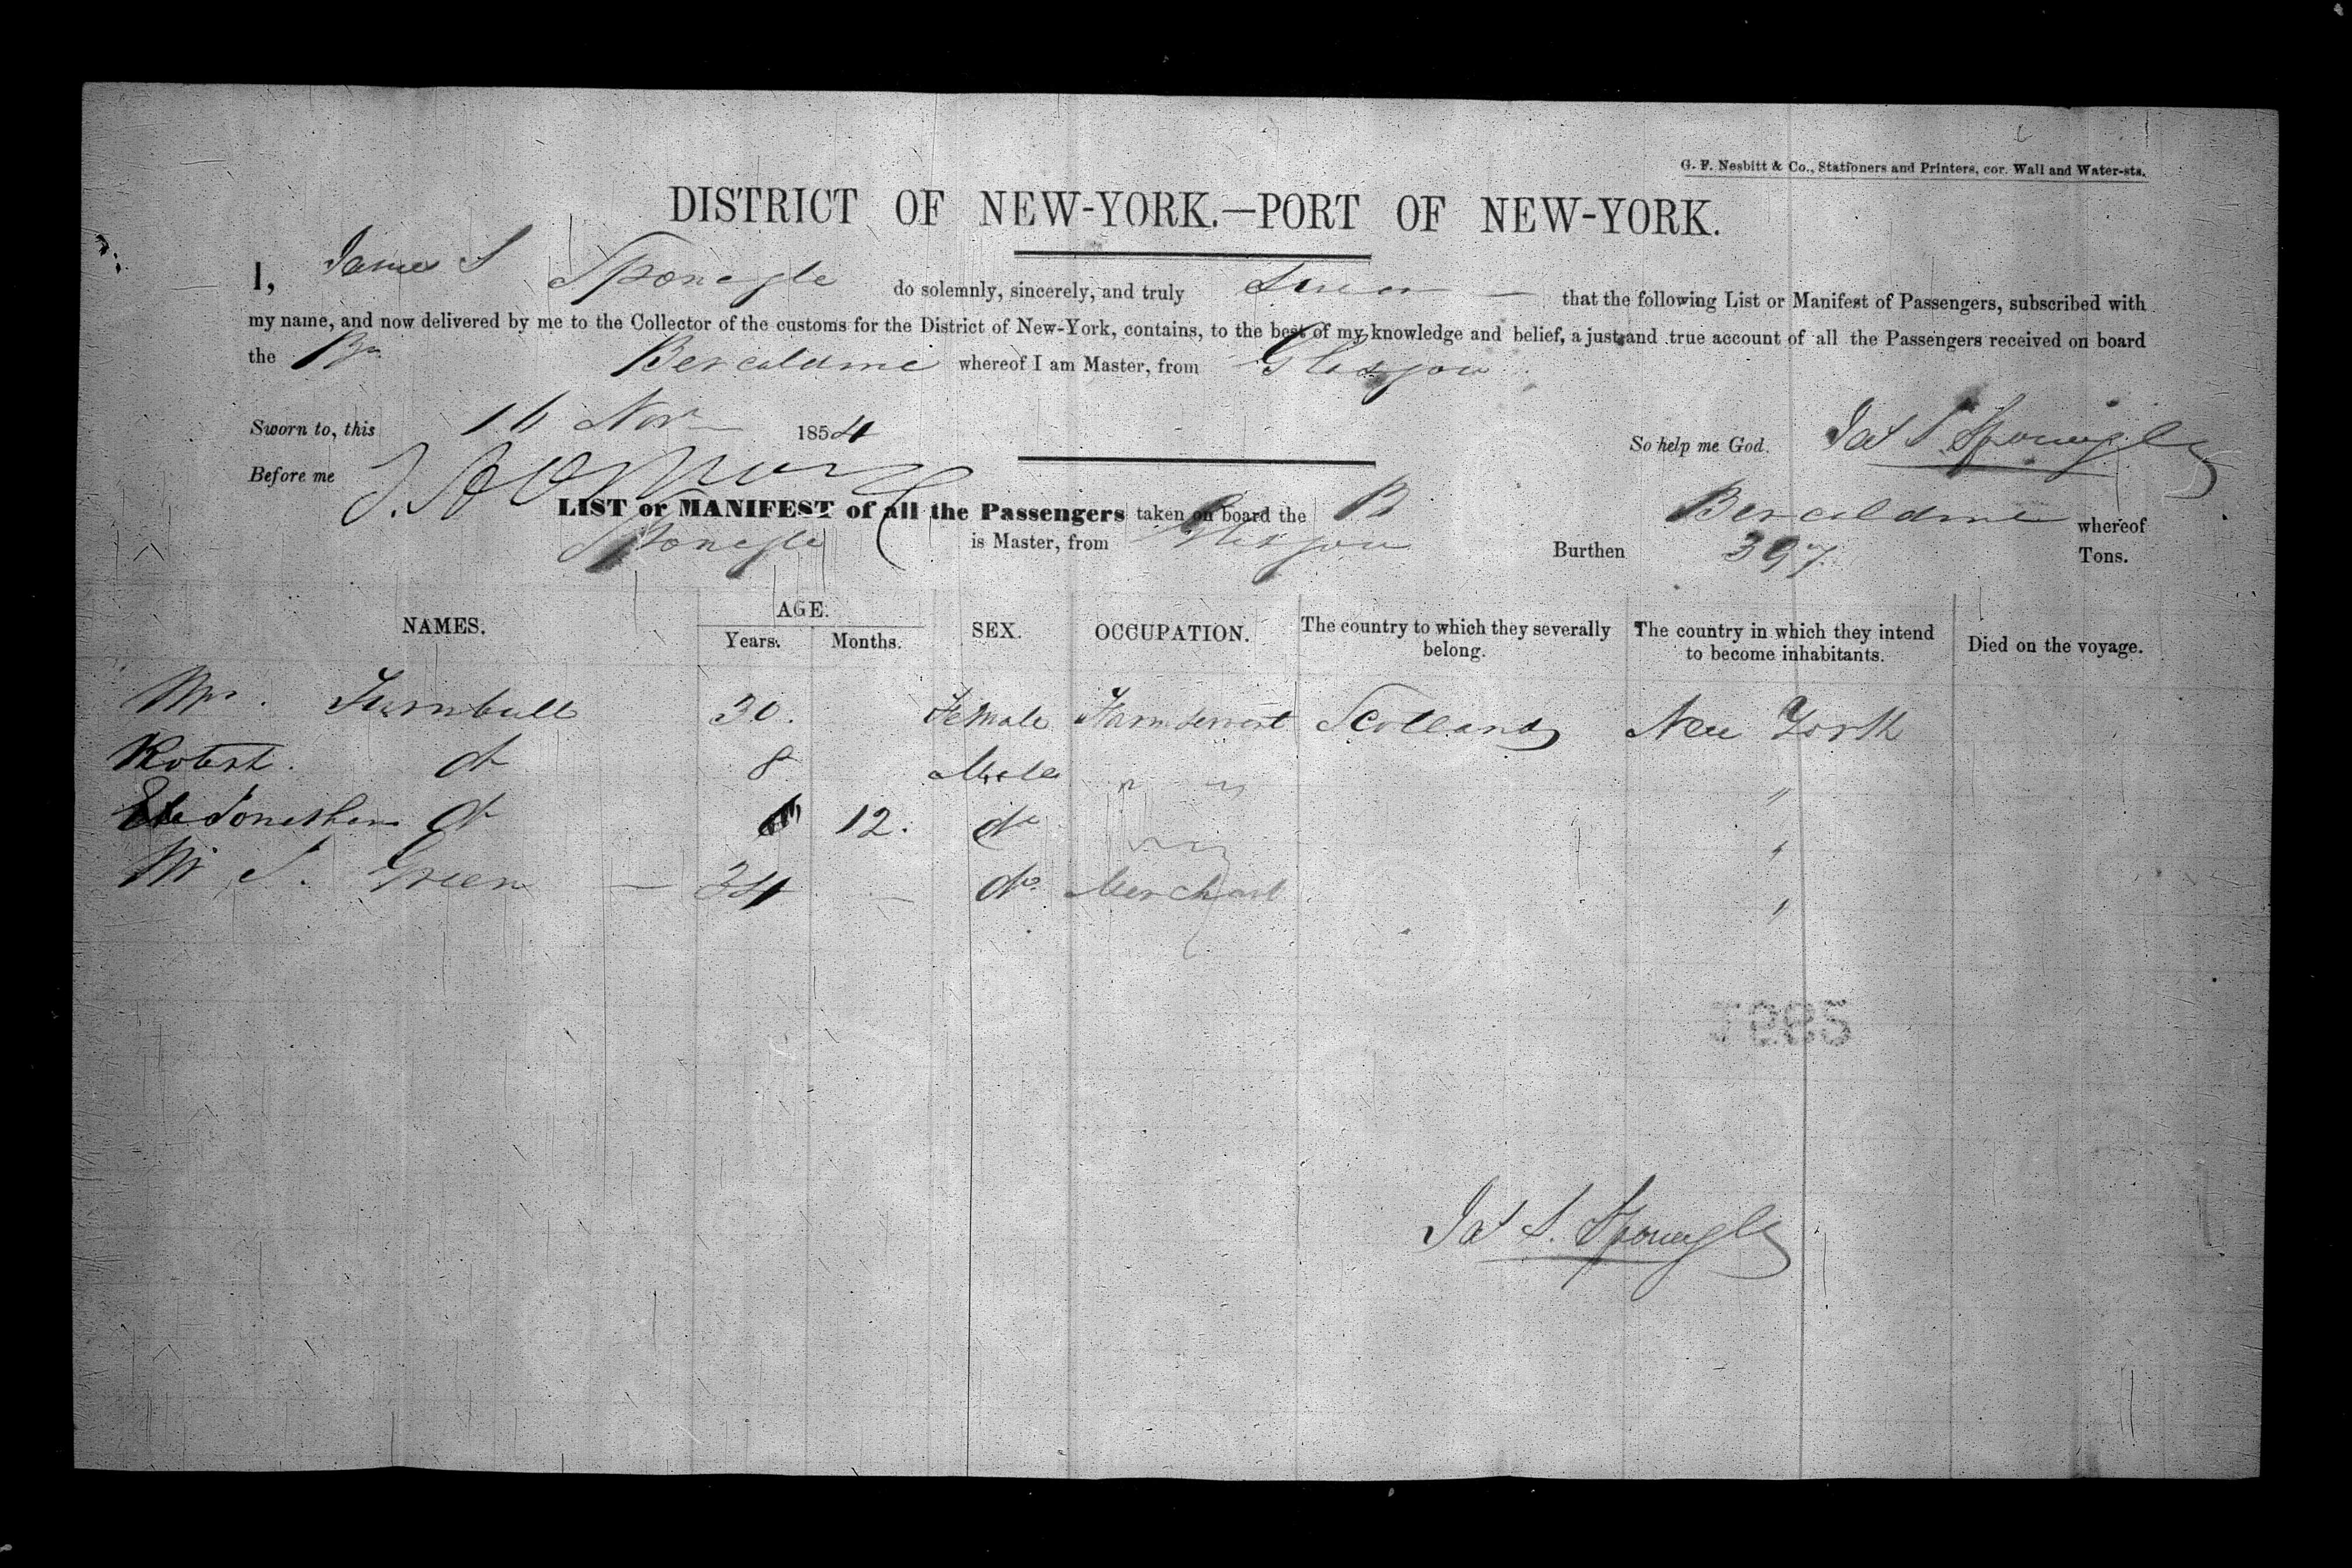 G. F. Nesbitt & Co., Stationers and Printers, cor. Wall and Water-sts.
DISTRICT OF NEW-YORK.—PORT OF NEW-YORK.
I, James S Sponagle do solemnly, sincerely, and truly Swear — that the following List or Manifest of Passengers, subscribed with
my name, and now delivered by me to the Collector of the customs for the District of New-York, contains, to the best of my knowledge and belief, a just and true account of all the Passengers received on board
the Br whereof I am Master, from Glasgow
Sworn to, this 16 Nov 1854
So help me God. Jas S Sponagle
Before me
LIST or MANIFEST of all the Passengers taken on board the B whereof
Sponagle is Master, from Glasgow Burthen 397 Tons.
NAMES. AGE. SEX. OCCUPATION. The country to which they severally belong. The country in which they intend to become inhabitants. Died on the voyage.
Years. Months.
Mrs. Turnbull 30. Female Farm servant Scotland New York
Robert. do 8 Male " " "
Jonathan do 12. do "
Mr J. Green — 34 — do Merchant "
Jas S. Sponagle